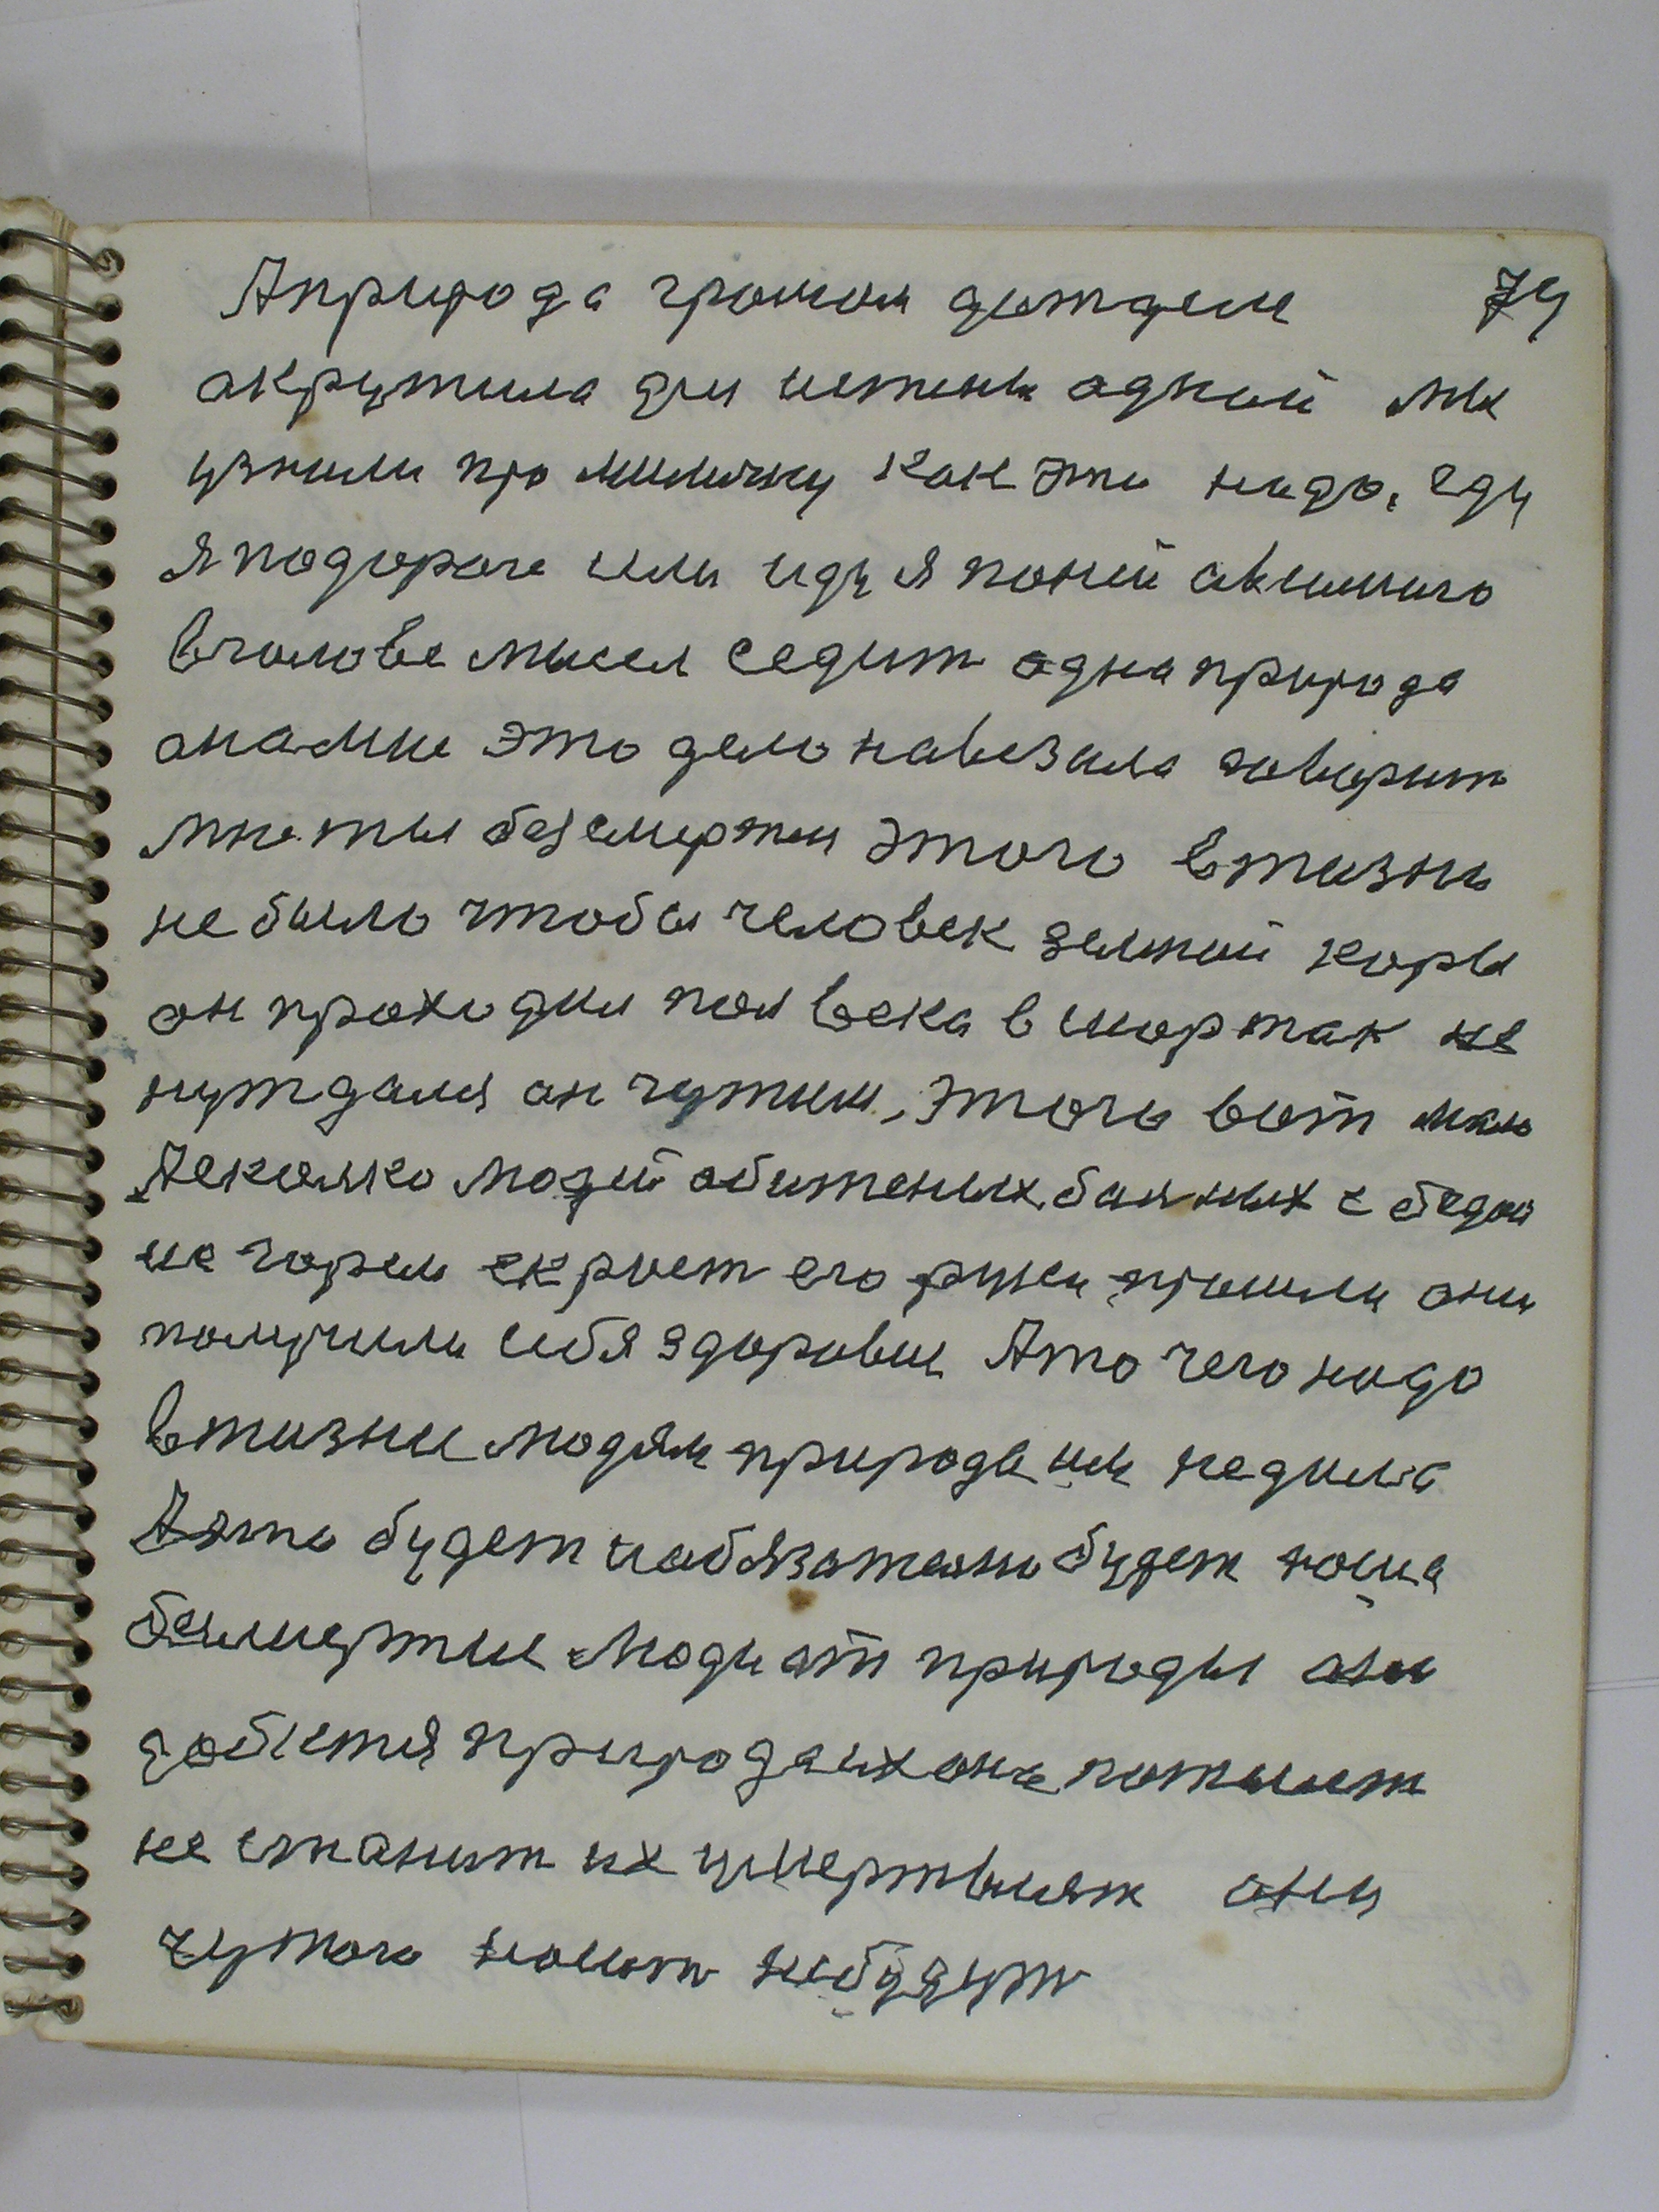 Априрода громом дождем 74
акружила для истены одной мы
узнали про миличку как эти надо, еду
я подороге или иду я по ней а вимиго
вголове мысел седит одна природа
она мне это дело навезала говорит
мне ты безсмертен этого вжизни
не было чтобы человек земной коры
он проходил пол века в шортах не
нуждался он чужим, этого вот мало
Асколко людей обиженых больных с бедой
и с горем скрозь его руки прошли они
получили себя здоровие А то чего надо
вжизни людям природа им недила
А это будет и обязательно будет наша
бесмертие люди от природы они
добютя природа их она потшит
не станит их умертвлять они
чужого носить небудут